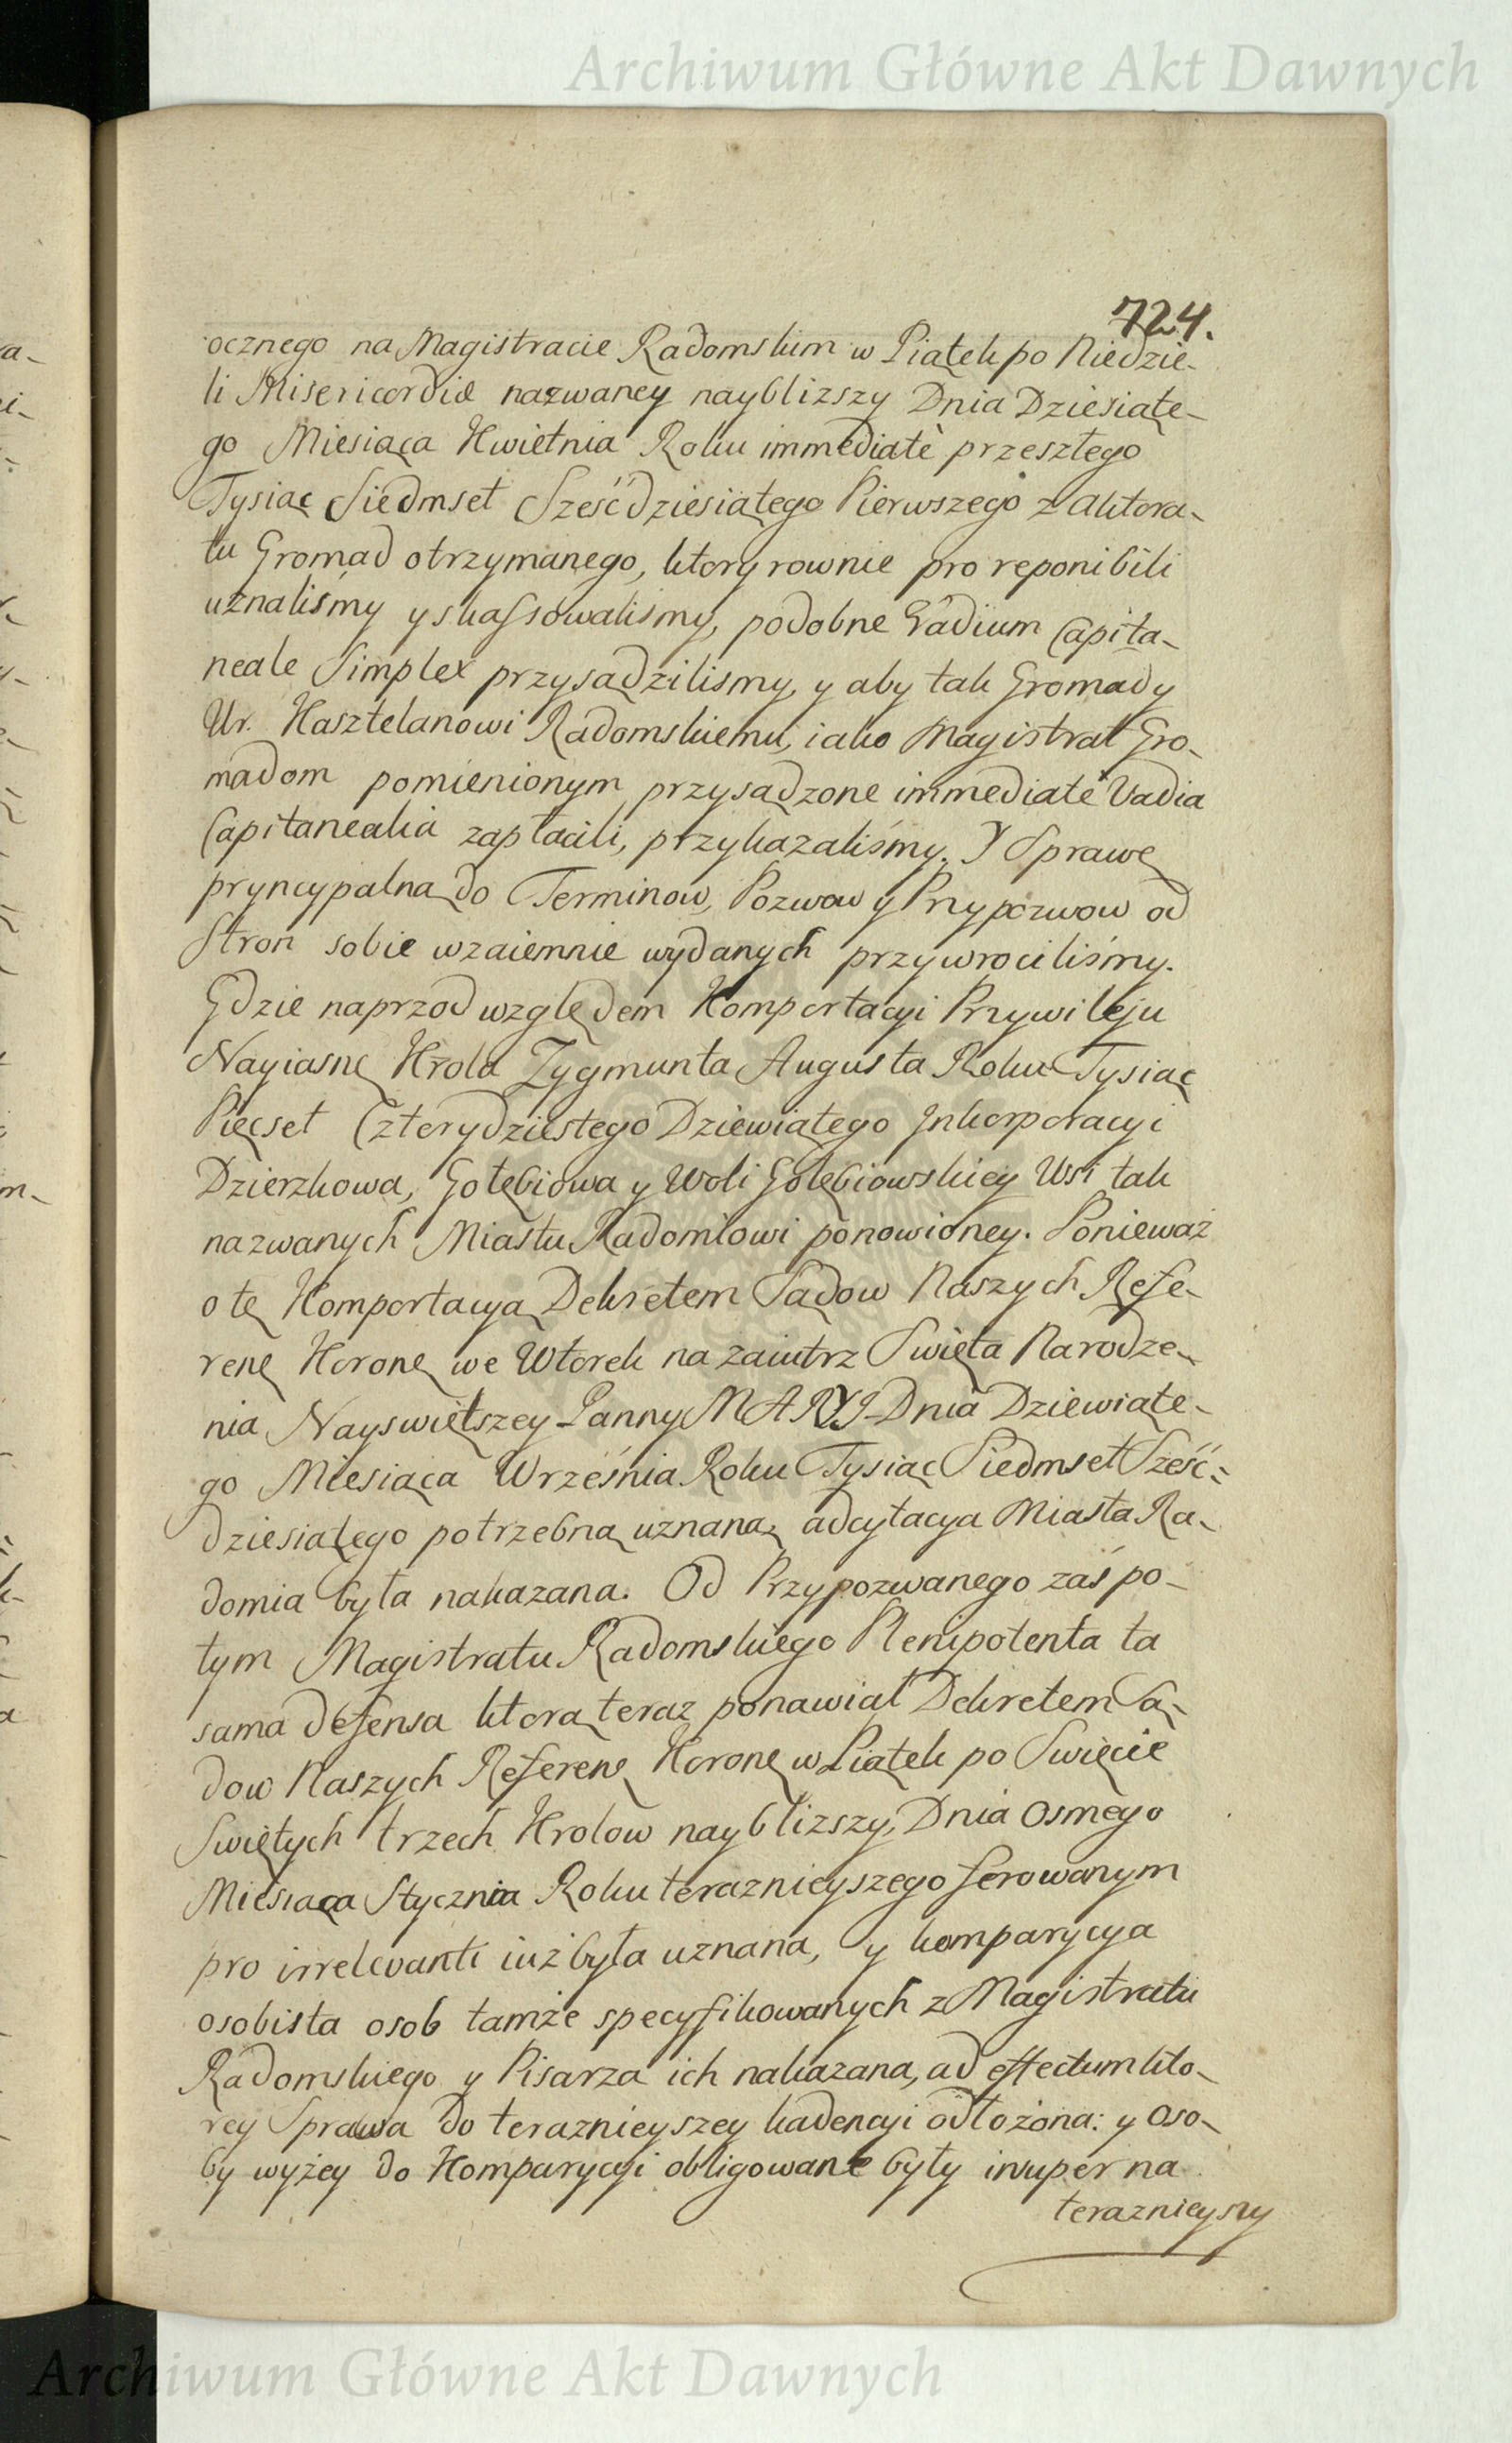 Archiwum Główne Akt Dawnych
724.
ocznego na Magistracie Radomskim w Piątek po Niedzie-
li Misericordiæ nazwaney naybliższy Dnia Dziesiąte-
go Miesiąca Kwietnia Roku immediatè przeszłego
Tysiąc Siedmset Sześćdziesiątego Pierwszego z aktora-
tu Gromad otrzymanego, ktory rownie pro reponibili
uznaliśmy y skassowaliśmy, podobne Vadium Capita-
neale Simplex przysądziliśmy, y aby tak Gromady
Ur. Kasztelanowi Radomskiemu, iako Magistrat Gro-
madom pomienionym przysądzone immediatè Vadia
Capitanealia zapłacili, przykazaliśmy. Y Sprawę
pryncypalną do Terminow, Pozwow y Przypozwow od
Stron sobie wzaiemnie wydanych przywrociliśmy.
Gdzie naprzod względem Komportacyi Przywileju
Nayiasnę Krola Zygmunta Augusta Roku Tysiąc
Pięcset Czterydziestego Dziewiątego Inkorporacyi
Dzierzkowa, Gołębiowa y Woli Gołębiowskiey Wsi tak
nazwanych Miastu Radomiowi ponowioney. Ponieważ
o tę Komportacyą Dekretem Sądow Naszych Refe-
renę Koronę we Wtorek nazaiutrz Swięta Narodze-
nia Nayswiętszey Panny MARYI Dnia Dziewiąte-
go Miesiąca Września Roku Tysiąc Siedmset Sześć-
dziesiątego potrzebną uznaną, adcytacya Miasta Ra-
domia była nakazana. Od Przypozwanego zaś po-
tym Magistratu Radomskiego Plenipotenta ta
sama defensa ktorą teraz ponawiał Dekretem Są-
dow Naszych Referenę Koronę w Piątek po Swięcie
Swiętych trzech Krolow naybliższy, Dnia Osmego
Miesiąca Stycznia Roku teraznieyszego ferowanym
pro irrelevanti iuż była uznana, y komparycya
osobista osob tamże specyfikowanych z Magistratu
Radomskiego y Pisarza ich nakazana, ad effectum kto-
rey Sprawa do teraznieyszey kadencyi odłożona: y oso-
by wyżey do Komparycyi obligowane były insuper na
teraznieyszy
Archiwum Główne Akt Dawnych